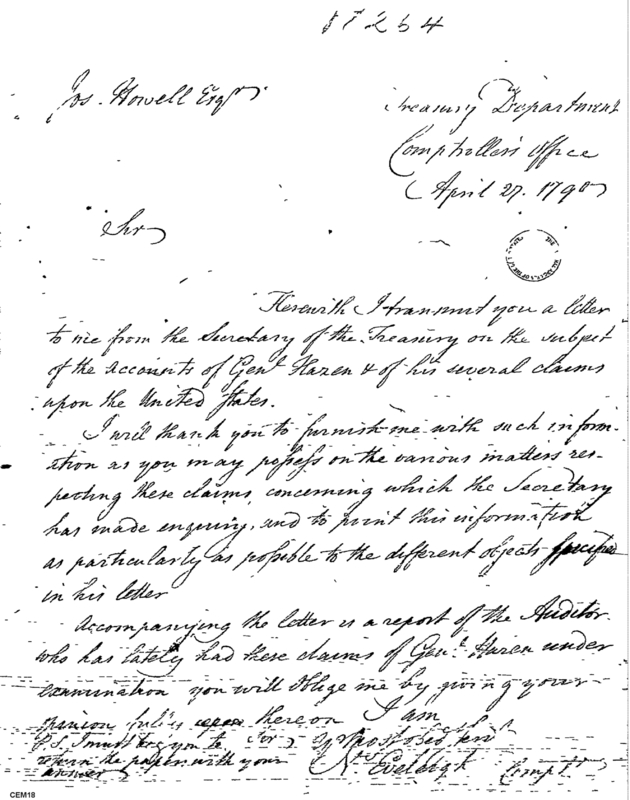 17264
Jos. Howell Esqr
Treasury Department
Comptroller's Office
April 27. 1790
Sir
Herewith I transmit you a letter
to me from the Secretary of the Treasury on the subject
of the accounts of Genl Hazen & of his several claims
upon the United States.
I will thank you to furnish me with such inform-
ation as you may possess on the various matters res-
pecting these claims, concerning which the Secretary
has made enquiry, and to point this information
as particularly as possible to the different objects specified
in his letter
Accompanying the letter is a report of the Auditor
who has lately had these claims of Genl. Hazen under
examination you will oblige me by giving your
opinion fully thereon I am
Sir yr Most Obed Servt
P.S. I must beg you to
return the papers with your
answer
Ns. Eveleigh Compt
CEM18